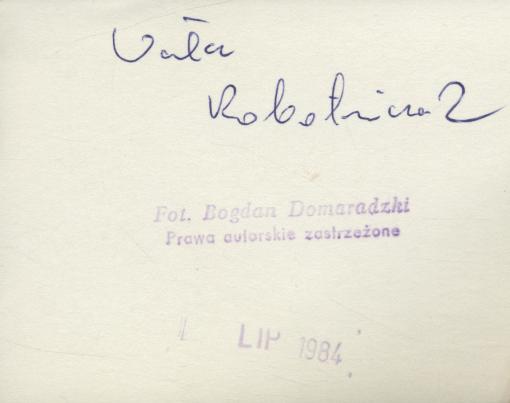 Robotnicza 2
Fot. Bogdan Domaradzki
Prawa autorskie zastrzeżone
LIP 1984